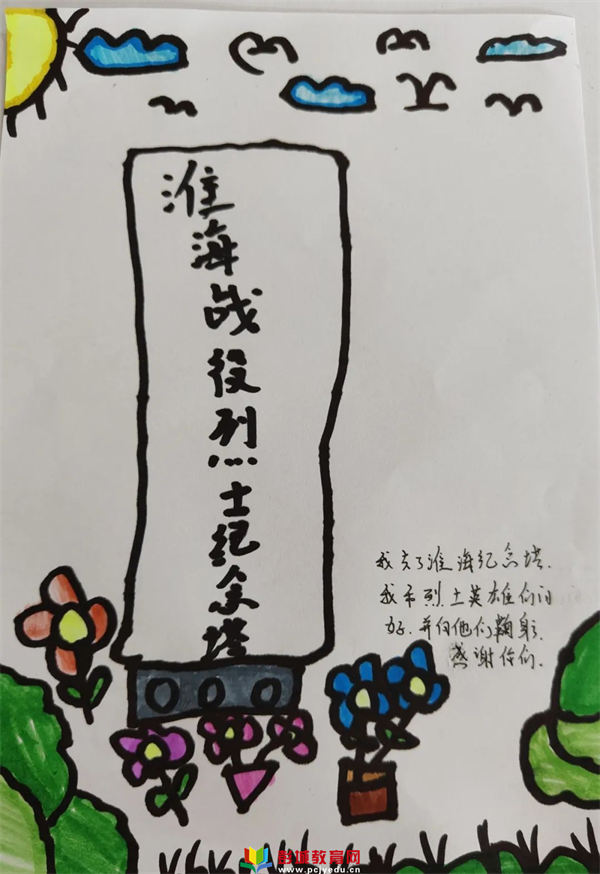 淮海战役烈士纪念塔
我去了淮海纪念塔.
我和烈士英雄们问
好.并向他们鞠躬.
感谢他们.
黔城教育网
www.pcjyedu.cn